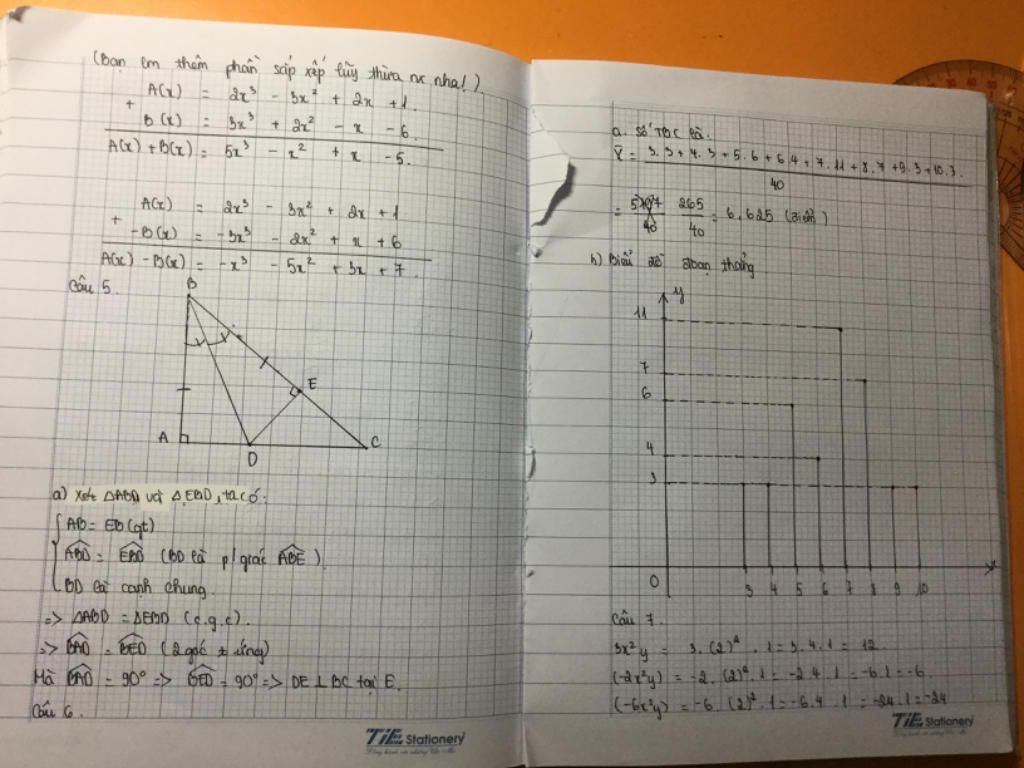 (Bạn em thêm phần sắp xếp lũy thừa nx nha!)
A(x) = 2x³ - 3x² + 2x + 1.
+
B(x) = 3x³ + 2x² - x - 6.
A(x) + B(x) = 5x³ - x² + x - 5.
A(x) = 2x³ - 3x² + 2x + 1
+
-B(x) = -3x³ - 2x² + x + 6
A(x) - B(x) = -x³ - 5x² + 3x + 7.
Câu 5.
B
E
A
D
C
a) Xét ΔABD và ΔEBD, ta có:
AB = EB (gt)
ABD = EBD (BD là p/giác ABE)
BD là cạnh chung.
=> ΔABD = ΔEBD (c.g.c).
=> BAD = BED (2 góc t ứng)
Mà BAD = 90° => BED = 90° => DE ⊥ BC tại E.
Câu 6.
TiE Stationery
a. Số TBC là:
X̄ = 3.3 + 4.3 + 5.6 + 6.4 + 7.11 + 8.7 + 9.3 + 10.3.
40
= 265 = 6,625 (điểm)
40 40
b) Biểu đồ đoạn thẳng
y
11
7
6
4
3
0 3 4 5 6 7 8 9 10 x
Câu 7.
3x²y = 3.(2)².1 = 3.4.1 = 12
(-2x²y) = -2.(2)².1 = -2.4.1 = -6.1 = -6
(-6x²y) = -6.(2)².1 = -6.4.1 = -24.1 = -24
TiE Stationery